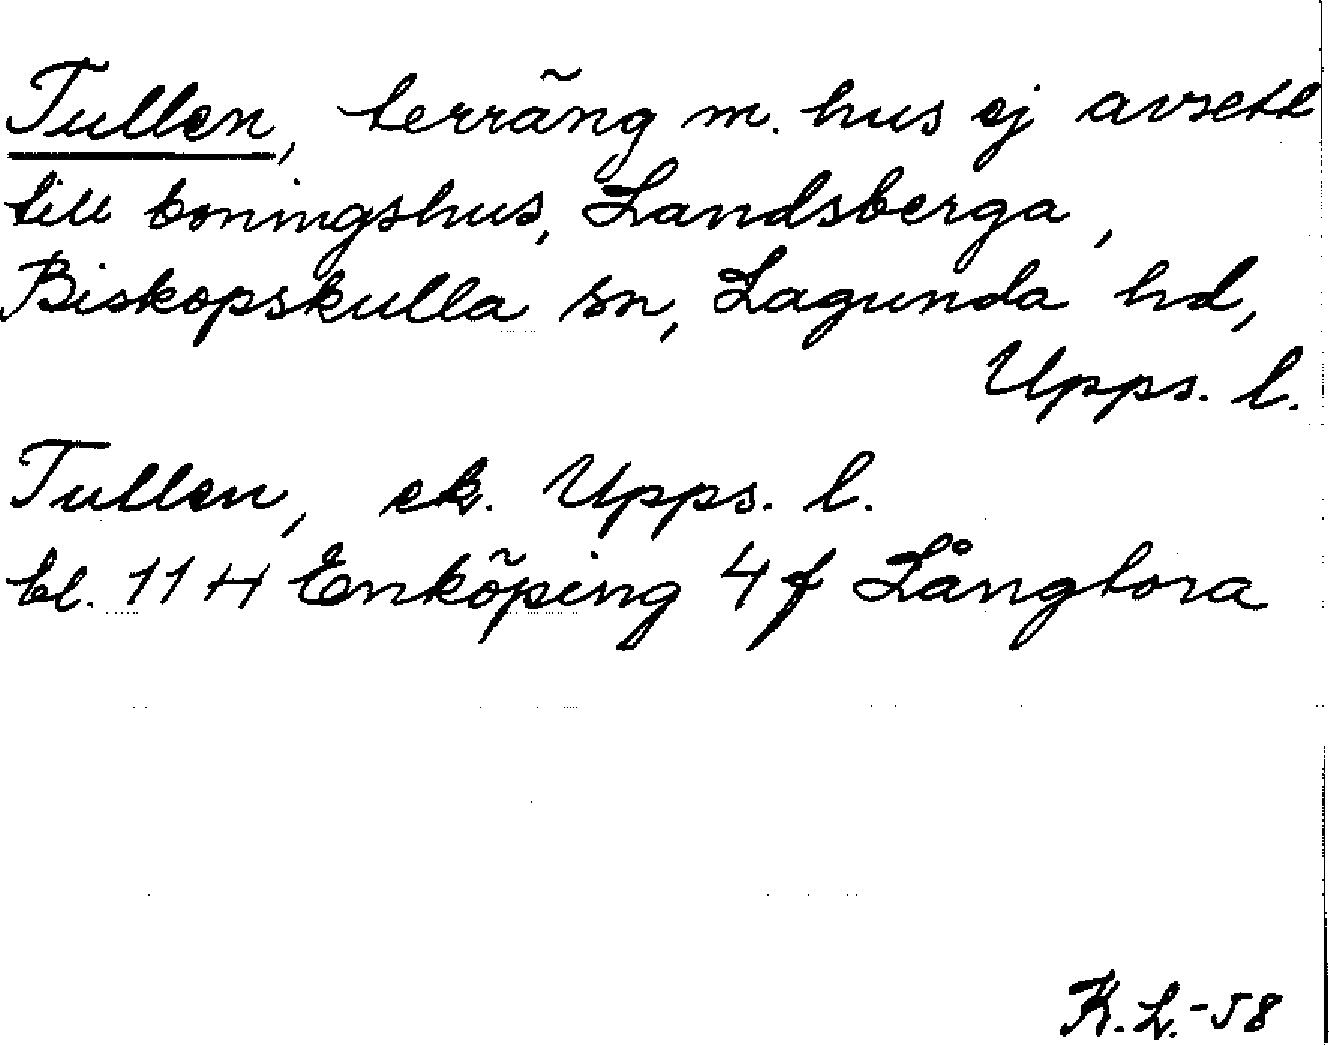 Tullen, terräng m. hus ej avsett
till boningshus, Landsberga,
Biskopskulla sn, Lagunda hd,
Upps. l.
Tullen, ek. Upps. l.
bl. 11 H Enköping 4 f Långtora
K. L. -58